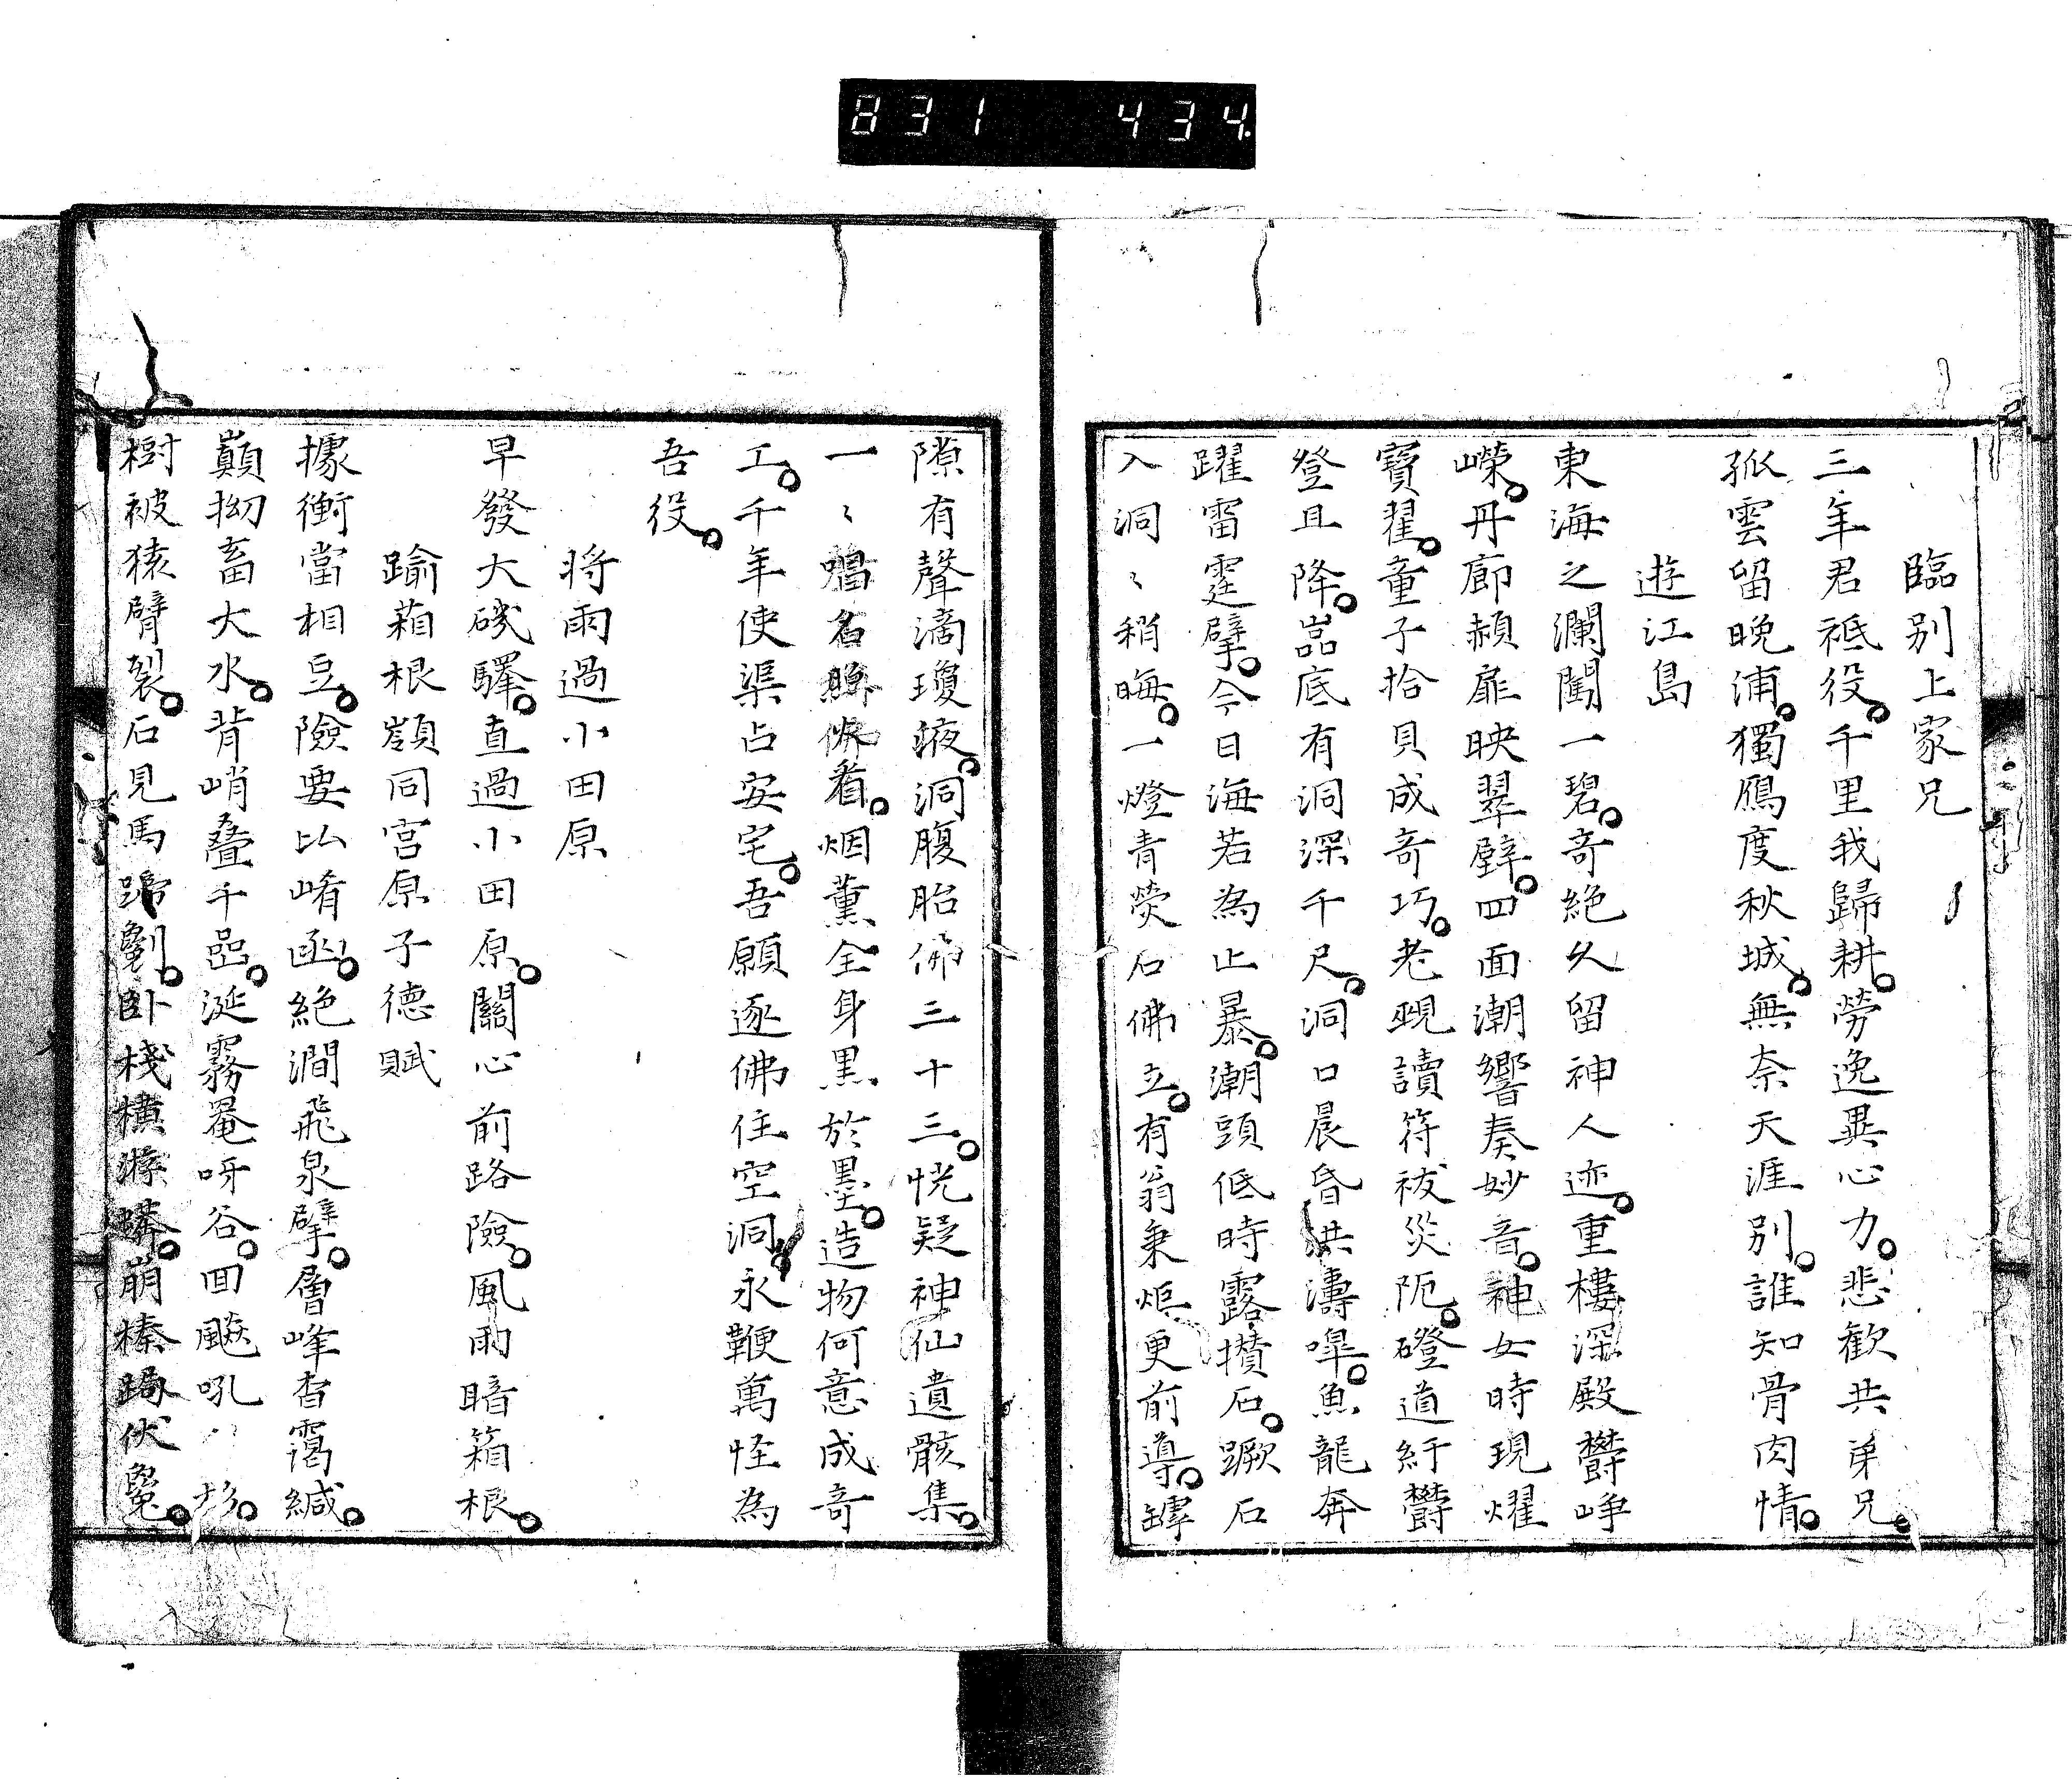 831 434
臨別上家兄
三年君祗役。千里我歸耕。勞逸異心力。悲歡共弟兄。
孤雲留晚浦。獨鴈度秋城。無奈天涯別。誰知骨肉情。
遊江島
東海之瀾闊一碧。奇絶久留神人迹。重樓深殿欝崢
嶸。丹廊赪扉映翠壁。四面潮響奏妙音。神女時現耀
寳翟。童子拾貝成奇巧。老覡讀符祓災阨。磴道紆欝
登且降。嵓底有洞深千尺。洞口晨昏洪濤嘷。魚龍奔
躍雷霆擘。今日海若為止暴。潮頭低時露攢石。蹶石
入洞〻稍晦。一燈青熒石佛立。有翁秉炬更前導。罅
隙有聲滴瓊液。洞腹胎佛三十三。恍疑神仙遺骸集。
一〻名看。烟薫全身黒於墨。造物何意成奇
工。千年使渠占安宅。吾願逐佛住空洞。永鞭萬怪為
吾役。
将雨過小田原
早發大磯驛。直過小田原。關心前路險。風雨暗箱根。
踰葙根嶺同宮原子德賦
據衝當相豆。險要比崤函。絶澗飛泉擘。層峰杳靄緘。
巔拗畜大水。背峭疊千嵒。涎霧罨呀谷。回飈吼。
樹被猿臂裂。石見馬蹄劖。卧棧橫蟒。崩榛跼伏毚。